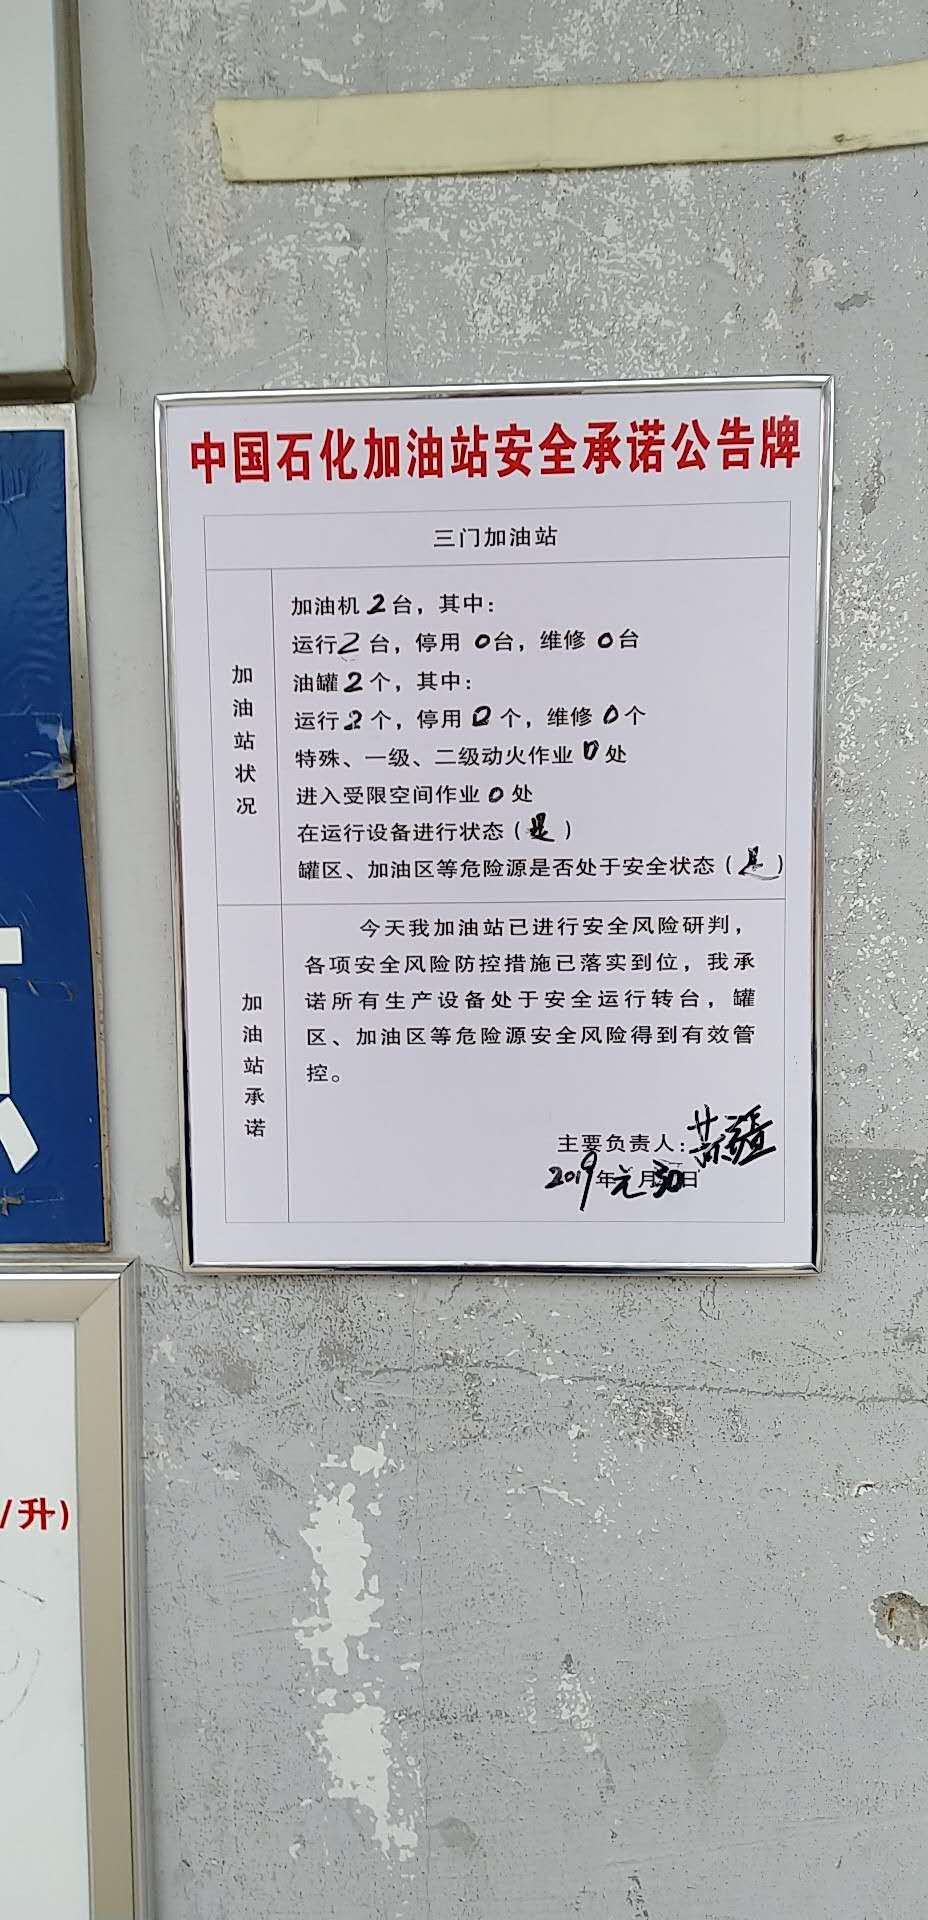 中国石化加油站安全承诺公告牌
三门加油站
加油站状况
加油机2台，其中：
运行2台，停用0台，维修0台
油罐2个，其中：
运行2个，停用0个，维修0个
特殊、一级、二级动火作业0处
进入受限空间作业0处
在运行设备进行状态（是）
罐区、加油区等危险源是否处于安全状态（是）
加油站承诺
今天我加油站已进行安全风险研判，
各项安全风险防控措施已落实到位，我承
诺所有生产设备处于安全运行转台，罐
区、加油区等危险源安全风险得到有效管
控。
主要负责人：
2019年元月30日
/升)